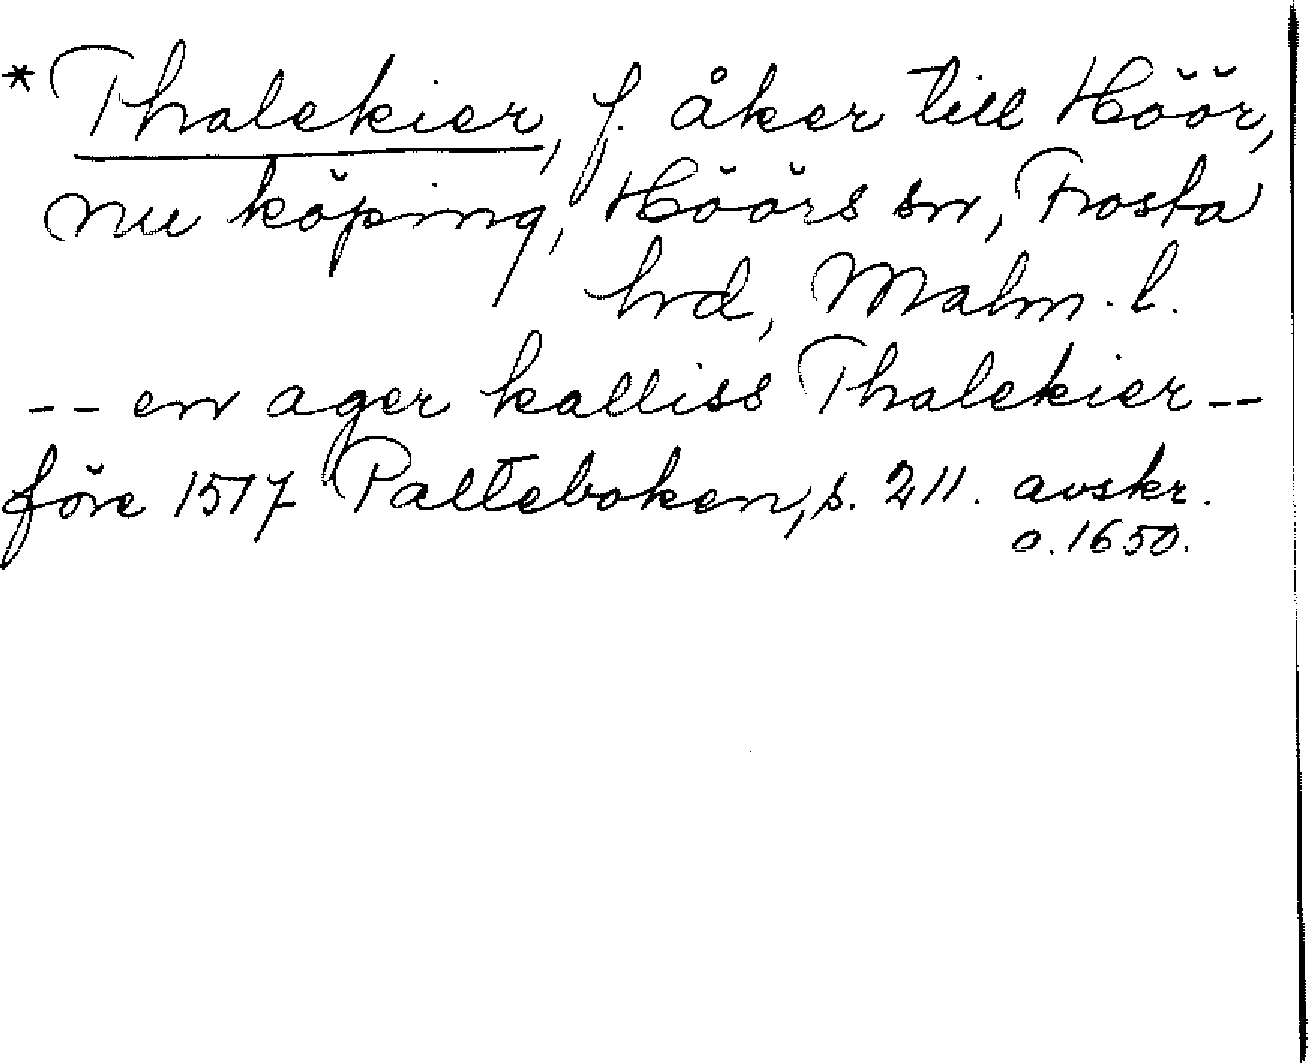 * Thalekier, f. åker till Höör,
nu köping, Höörs sn, Frosta
hrd, Malm. l.
-- en ager kalliss Thalekier --
före 1517 Palteboken, s. 211. avskr.
o. 1650.